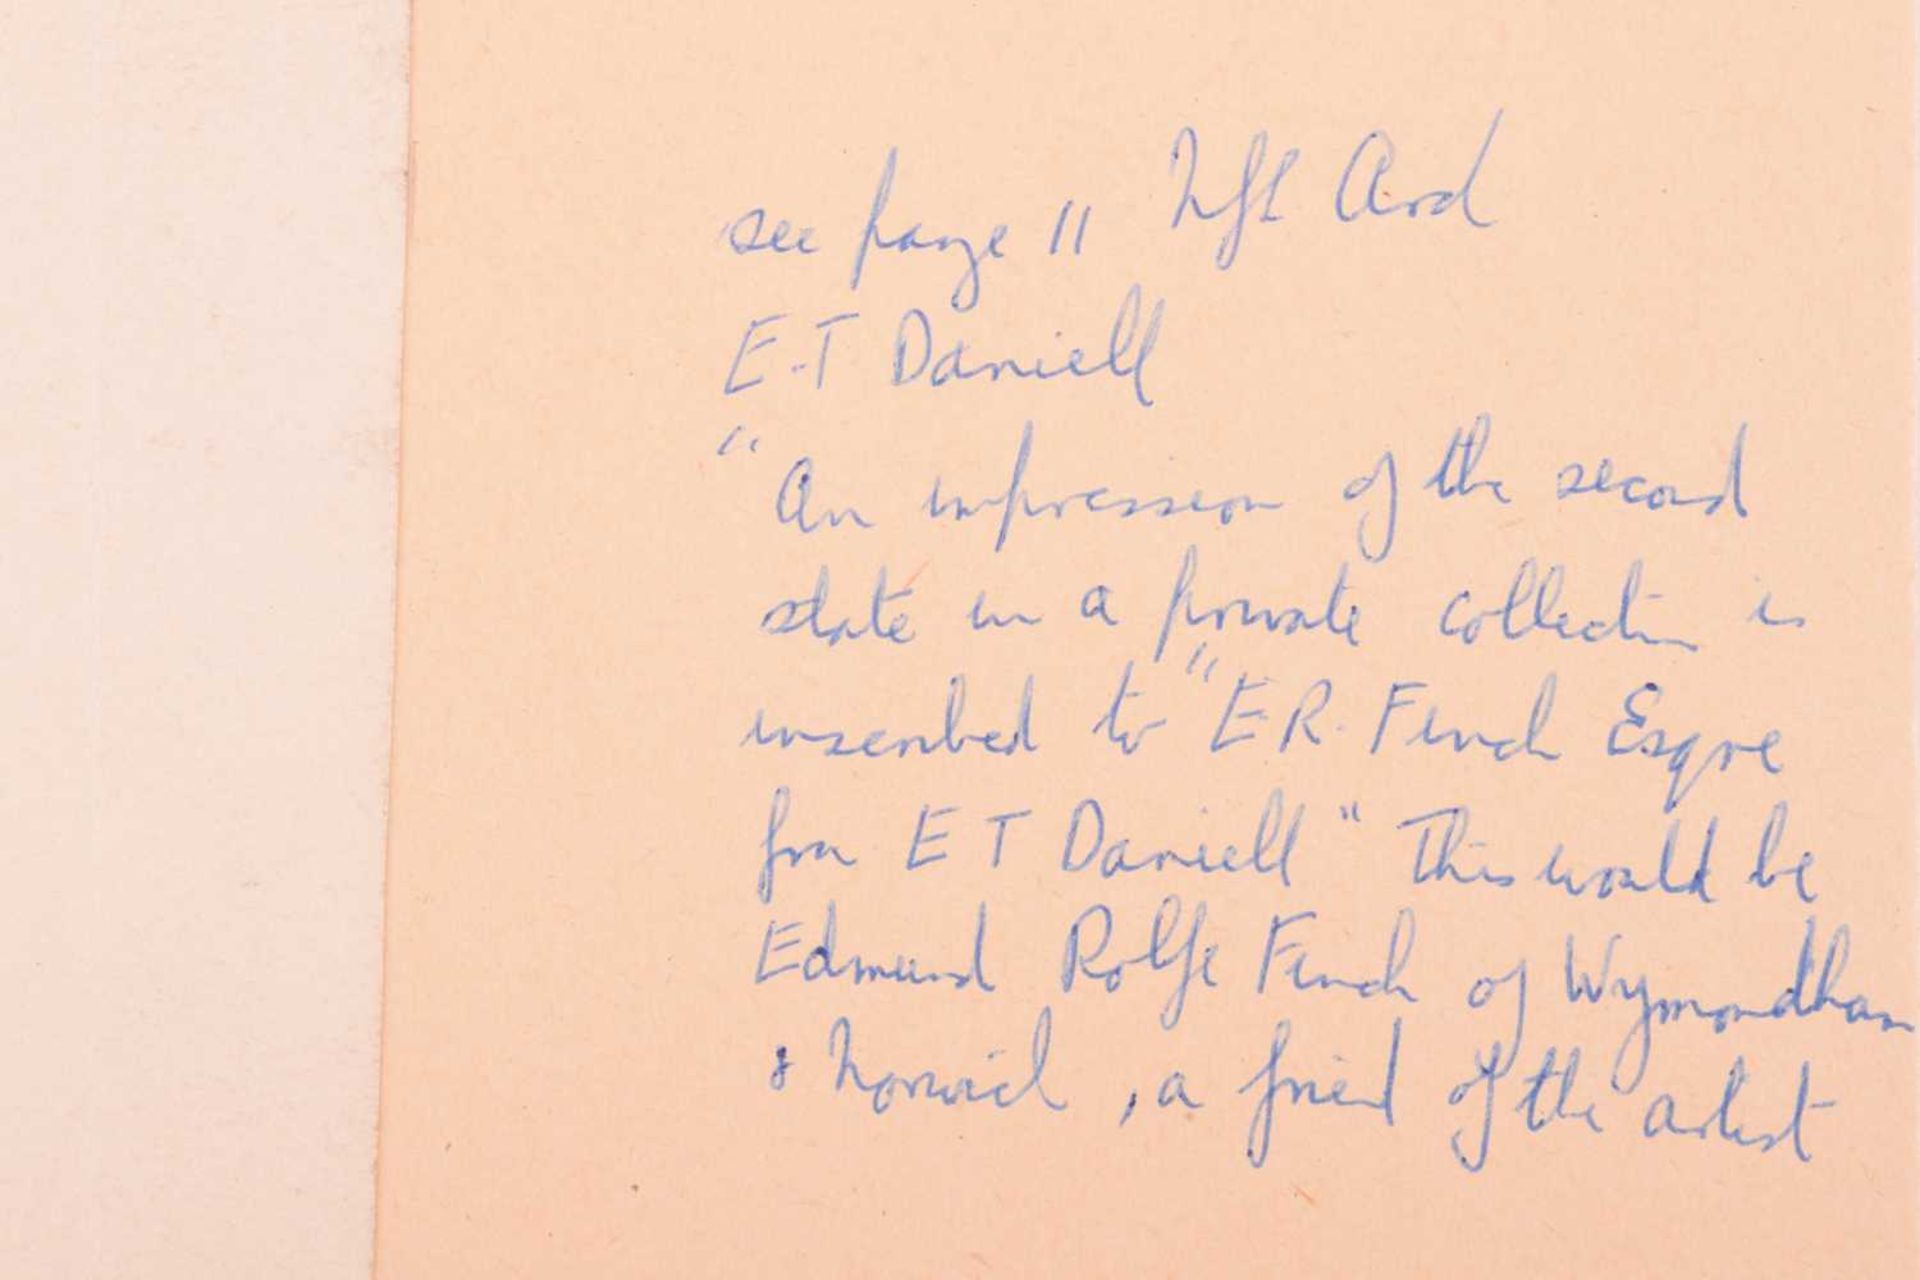 see page 11 Nfk Ard
E.T Daniell
"An impression of the second
state in a private collection is
inscribed to "E.R. Finch Esqre
from E T Daniell" This would be
Edmund Rolfe Finch of Wymondham
& Norwich, a friend of the artist